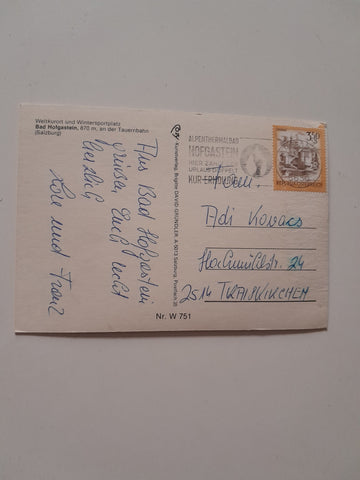 Weltkurort und Wintersportplatz
Bad Hofgastein, 870 m, an der Tauernbahn
(Salzburg)
Aus Bad Hofgastein
grüßen Euch recht
herzlich
Lore und Franz
Kunstverlag, Brigitte DAVID GRÜNDLER, A-5013 Salzburg, Postfach 35
Nr. W 751
ALPENTHERMALBAD
HOFGASTEIN
HIER ZÄHLT
URLAUB
KUR-ERHOLUNG
3.50
REPUBLIK ÖSTERREICH
Fam.
Adi Kovacs
Hochmühlstr. 24
2514 TRAISKIRCHEN